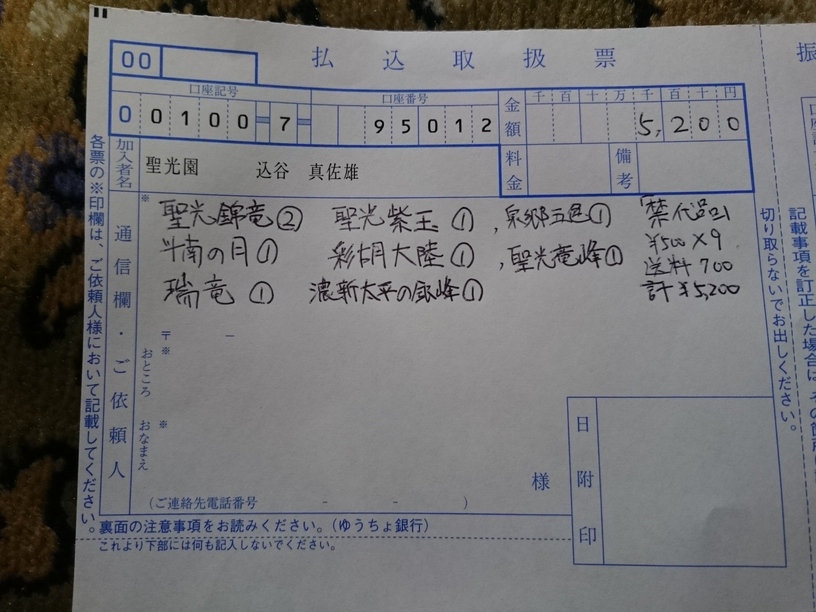 払込取扱票
00
口座記号 口座番号
00100-7- 95012
金額 千百十万千百十円
5,200
加入者名 聖光園 込谷 真佐雄
料金 備考
※ 聖光錦竜② 聖光紫玉①,泉郷五色①
斗南の月① 彩胡大陸①,聖光竜峰①
瑞竜① 濃新太平の銀峰①
代品21
¥500×9
送料 700
計¥5,200
通信欄・ご依頼人
〒 -
※
おところ おなまえ
※
様
(ご連絡先電話番号 - - )
日附印
裏面の注意事項をお読みください。(ゆうちょ銀行)
これより下部には何も記入しないでください。
各票の※印欄は、ご依頼人様において記載してください。
切り取らないでお出しください。
記載事項を訂正した場合は、その箇所
振
口座記